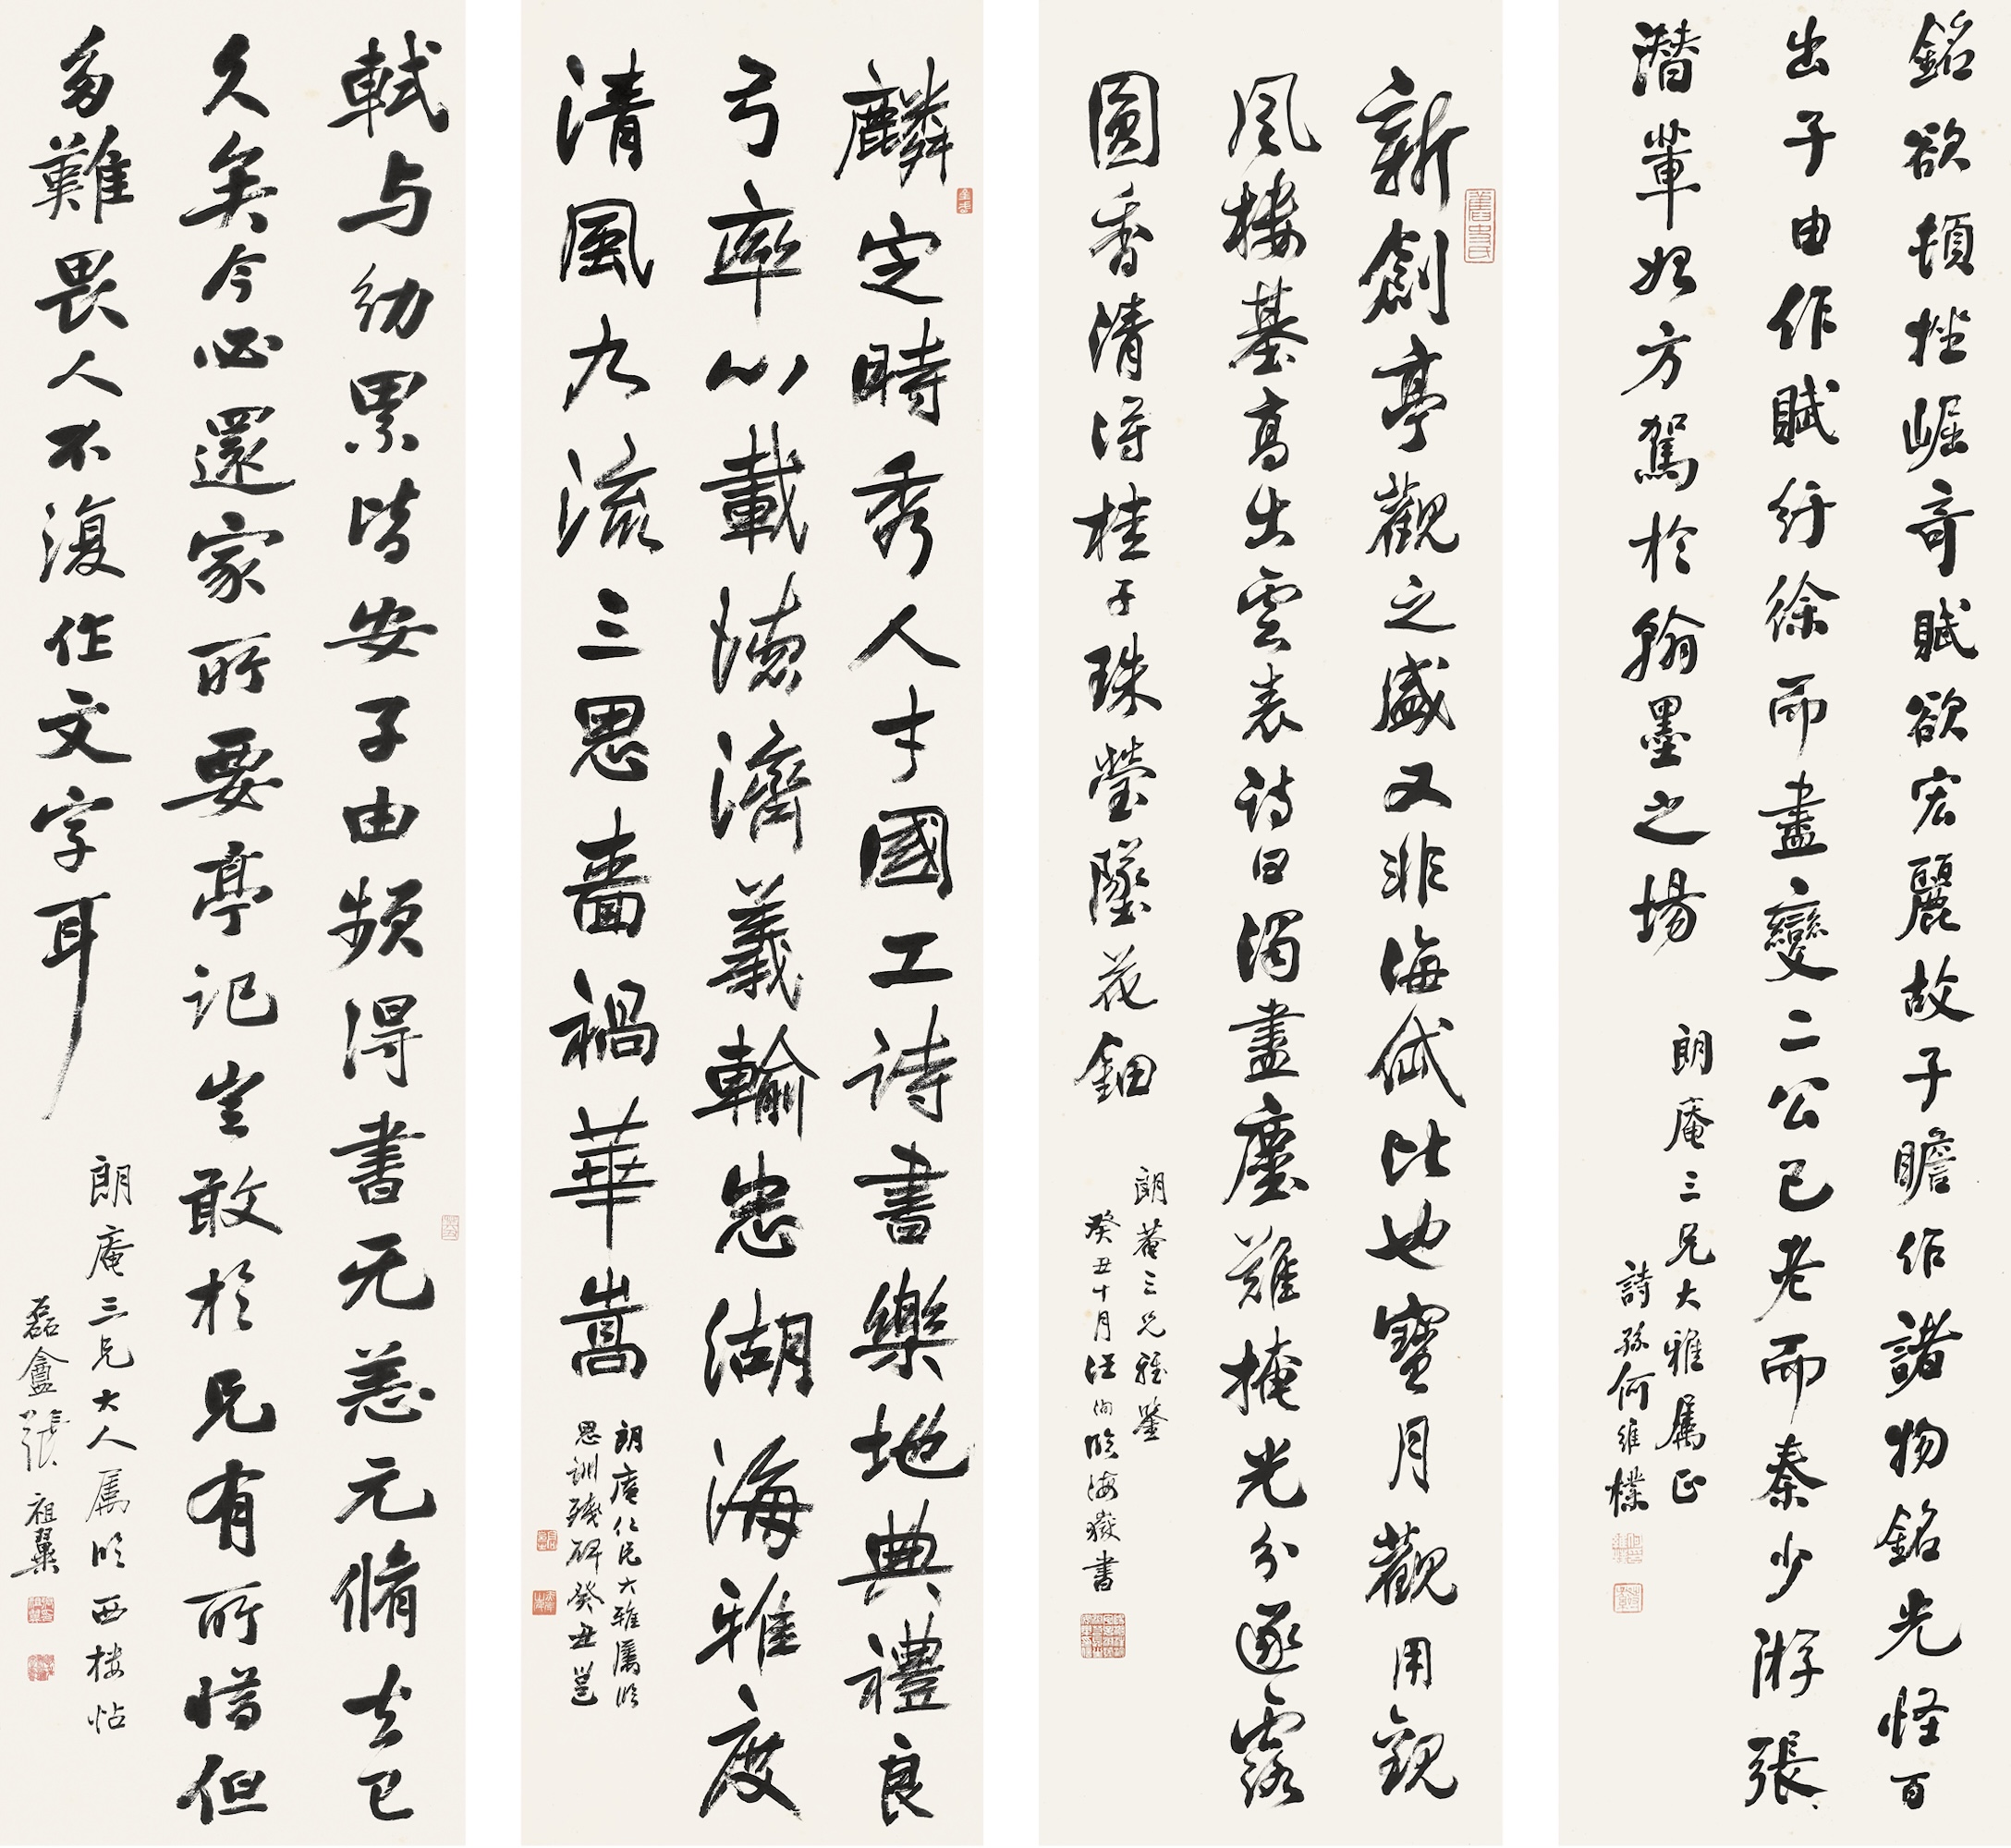 銘欲頓挫崛奇賦欲宏麗故子瞻作諸物銘光怪百
出子由作賦紆徐而盡變二公已老而秦少游張
潛輩始方駕於翰墨之場
朗庵三兄大雅屬正
詩孫何維樸
新創亭觀之盛又非海岱比也寶月觀用觀
風樓基高出雲表詩曰濁盡塵難掩光分遂露
圓香清得桂子珠瑩墜花鈿
朗菴三兄雅鑒
癸丑十月汪洵臨海嶽書
麟定時秀人才國工詩書樂地典禮良
弓率心載德濟義輸忠湖海雅度
清風九流三思嗇禍華嵩
朗庵仁兄大雅屬臨
思訓殘碑癸丑邕
軾与幼累皆安子由頻得書无恙元脩去已
久矣今必還家所要亭記豈敢於兄有所惜但
多難畏人不復作文字耳
朗庵三兄大人屬臨西樓帖
磊盦張祖翼